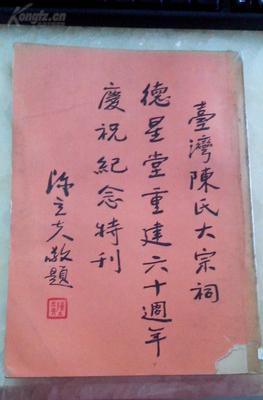 臺灣陳氏大宗祠
德星堂重建六十週年
慶祝紀念特刊
陳立夫敬題
Kongfz.cn